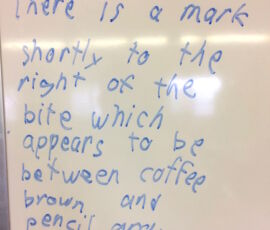 There is a mark
shortly to the
right of the
bite which
appears to be
between coffee
brown and
pencil gray